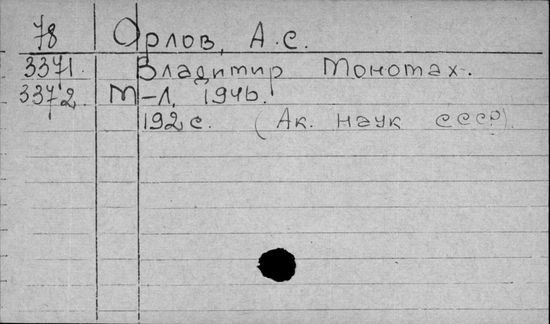 78 Орлов, А.С.
3371. Владимир Мономах.
3372. М-Л, 1946.
192 с. (Ак. наук СССР).